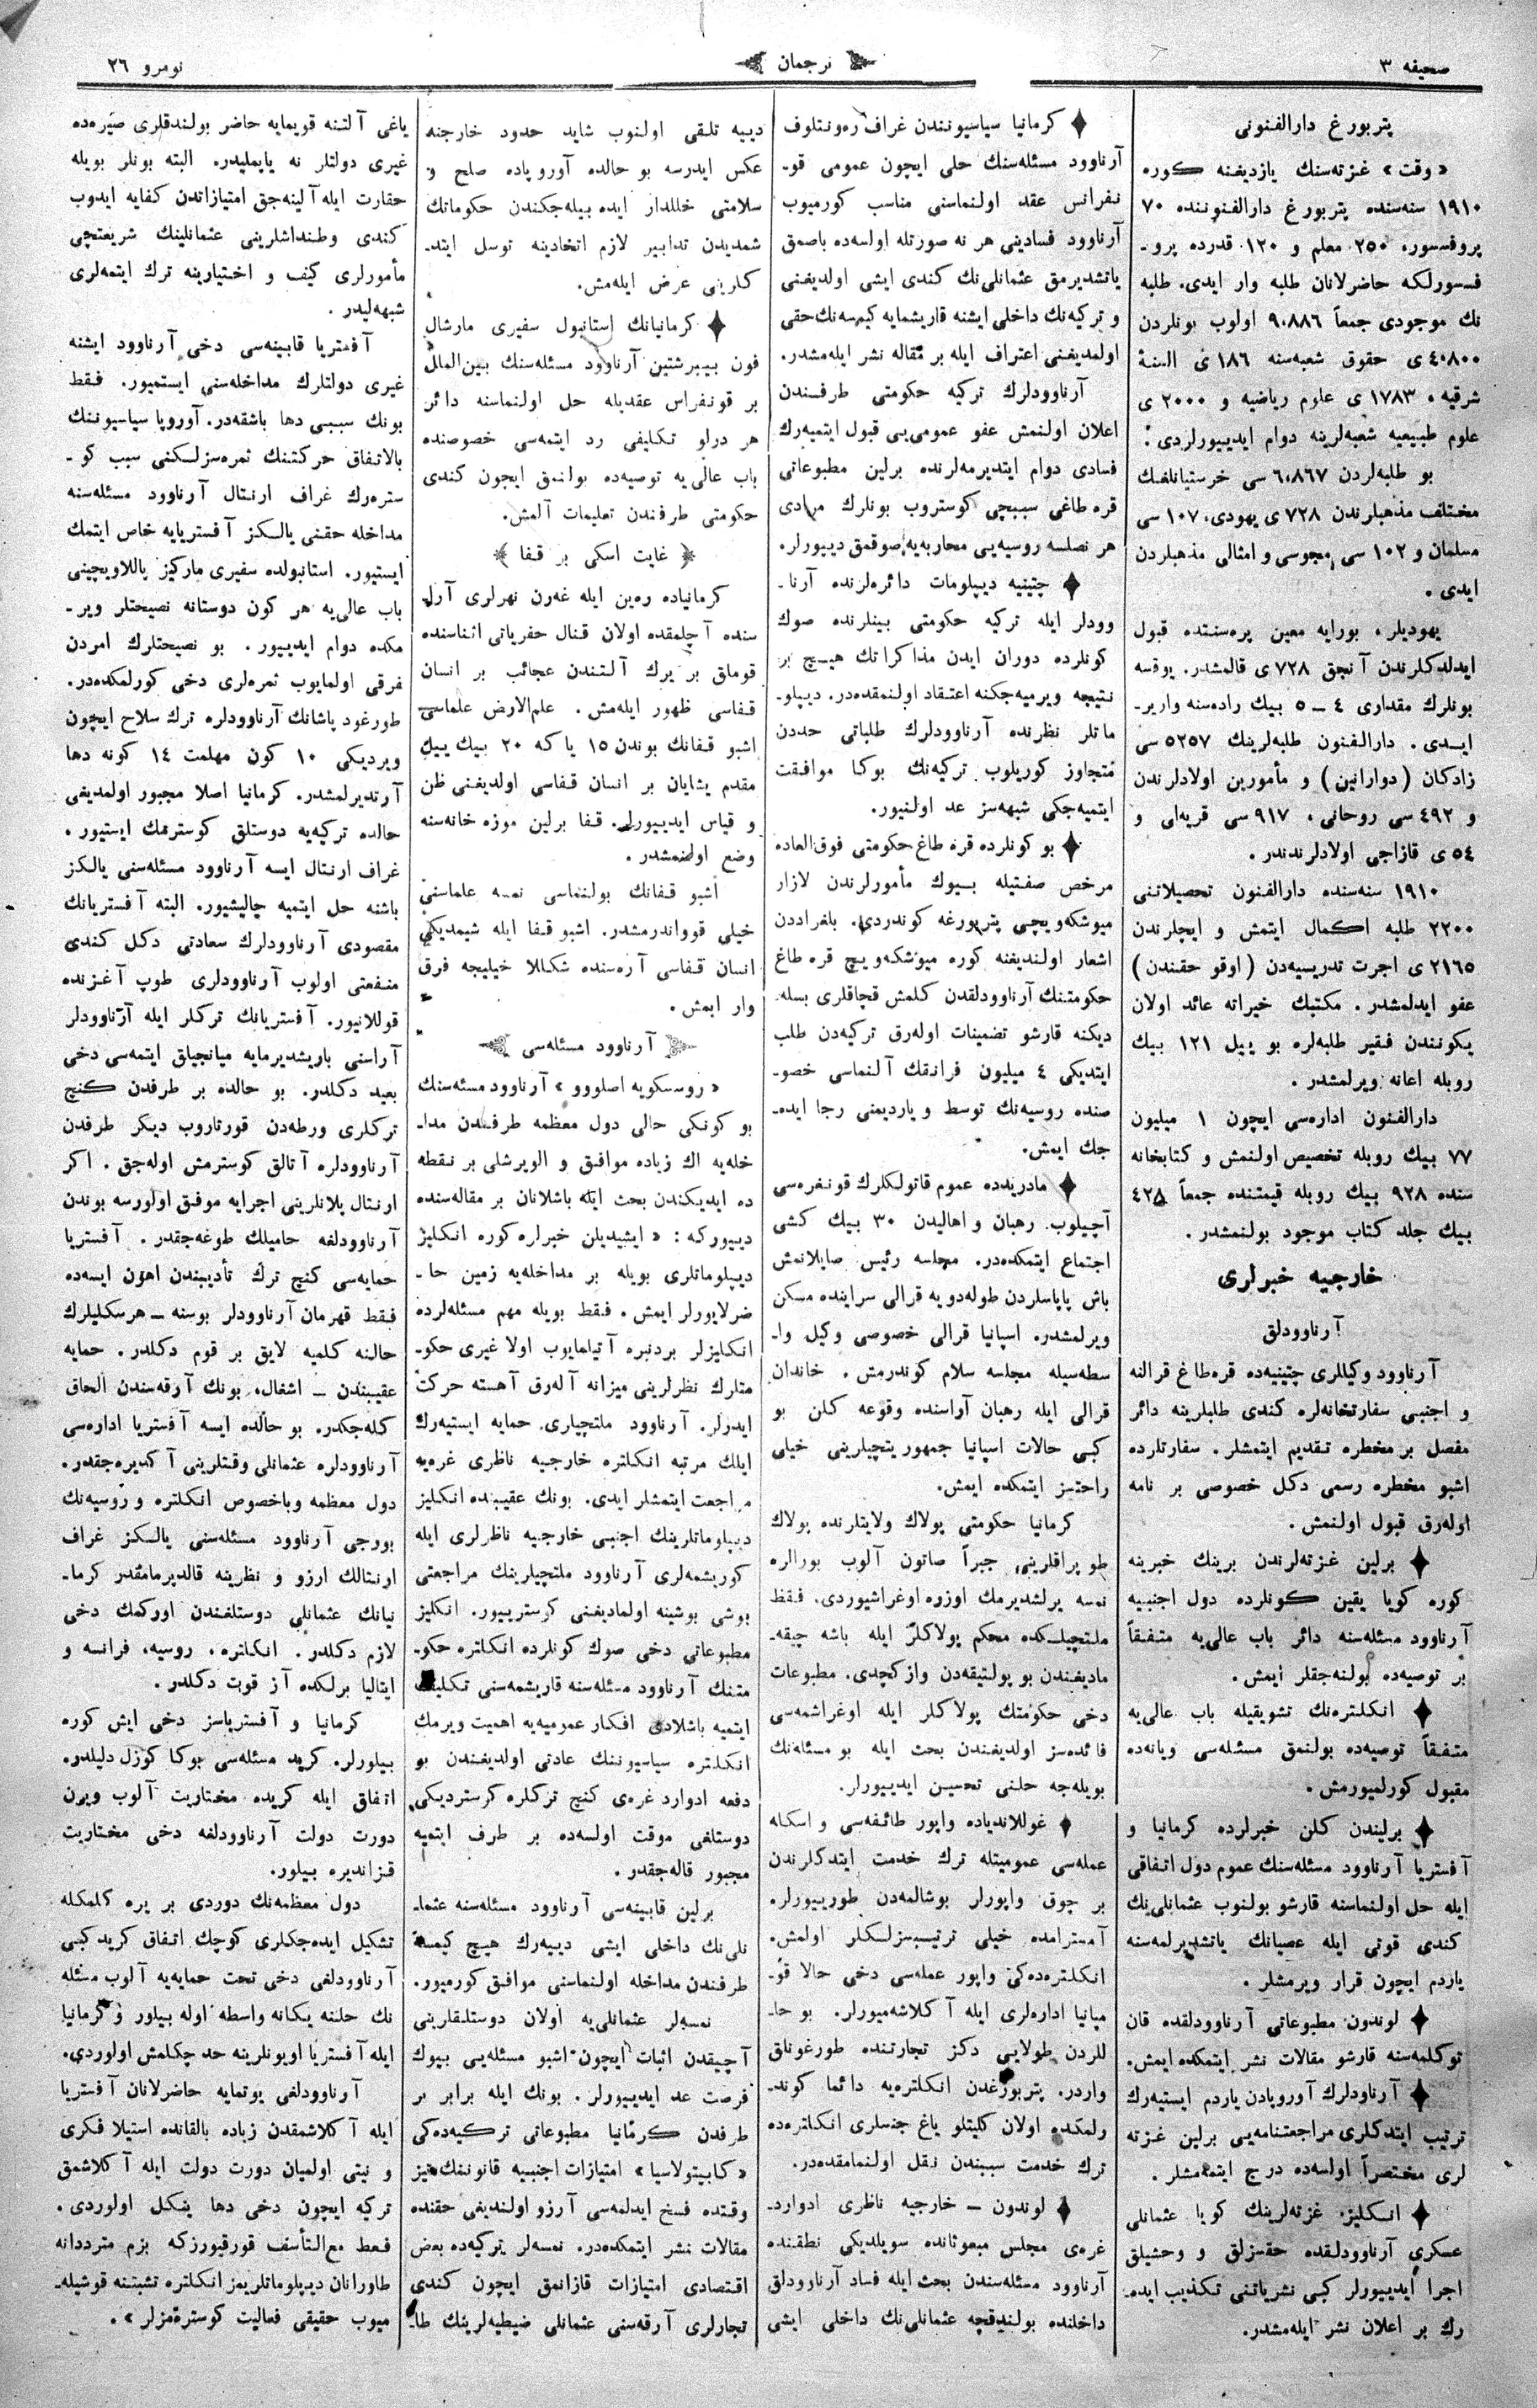 صحیفه ٣
ترجمان
نومرو ٢٦
پتربورغ دارالفنونی
«وقت» غزته‌سنك یازدیغنه كوره
١٩١٠ سنه‌سنده پتربورغ دارالفنوننده ٧٠
پروفسسور، ٢٥٠ معلم و ١٢٠ قدرده پرو-
فسسورلكه حاضرلانان طلبه وار ایدی. طلبه
نك موجودی جمعاً ٩،٨٨٦ اولوب بونلردن
٤٠٨٠٠ ی حقوق شعبه‌سنه ١٨٦ ی السنهٔ
شرقیه، ١٧٨٣ ی علوم ریاضیه و ٢٠٠٠ ی
علوم طبیعیه شعبه‌لرینه دوام ایدییورلردی.
بو طلبه‌لردن ٦،٨٦٧ سی خرستیانلغك
مختلف مذهبلرندن ٧٢٨ ی یهودی، ١٠٧ سی
مسلمان و ١٠٢ سی مجوسی و امثالی مذهبلردن
ایدی.
یهودیلر، بورایه معین پره‌سنتده قبول
ایدلدكلرندن آنجق ٧٢٨ ی قالمشدر. یوقسه
بونلرك مقداری ٤ـ٥ بیك راده‌سنه واریر-
ایدی. دارالفنون طلبه‌لرینك ٥٢٥٧ سی
زادكان (دوارانین) و مأمورین اولادلرندن
و ٤٩٢ سی روحانی، ٩١٧ سی قریه‌لی و
٥٤ ی قازاجی اولادلرندندر.
١٩١٠ سنه‌سنده دارالفنون تحصیلاتنی
٢٢٠٠ طلبه اكمال ایتمش و ایچلرندن
٢١٦٥ ی اجرت تدریسیه‌دن (اوقو حقندن)
عفو ایدلمشدر. مكتبك خیراته عائد اولان
یكونندن فقیر طلبه‌لره بو ییل ١٢١ بیك
روبله اعانه ویرلمشدر.
دارالفنون اداره‌سی ایچون ١ میلیون
٧٧ بیك روبله تخصیص اولنمش و كتابخانه
سنده ٩٢٨ بیك روبله قیمتنده جمعاً ٤٢٥
بیك جلد كتاب موجود بولنمشدر.
خارجیه خبرلری
آرناوودلق
آرناوود وكیللری چتینیه‌ده قره‌طاغ قرالنه
و اجنبی سفارتخانه‌لره كندی طلبلرینه دائر
مفصل بر مخطره تقدیم ایتمشلر. سفارتلرده
اشبو مخطره رسمی دكل خصوصی بر نامه
اوله‌رق قبول اولنمش.
برلین غزته‌لرندن برینك خبرینه
كوره كویا یقین كونلرده دول اجنبیه
آرناوود مسئله‌سنه دائر باب عالی‌یه متفقاً
بر توصیه‌ده بولنه‌جقلر ایمش.
انكلتره‌نك تشویقیله باب عالی‌یه
متفقاً توصیه‌ده بولنمق مسئله‌سی ویانه‌ده
مقبول كورلمیورمش.
برلیندن كلن خبرلرده كرمانیا و
آفستریا آرناوود مسئله‌سنك عموم دول اتفاقی
ایله حل اولنماسنه قارشو بولنوب عثمانلی‌نك
كندی قوتی ایله عصیانك یاتشدیرلمه‌سنه
یاردم ایچون قرار ویرمشلر.
لوندون مطبوعاتی آرناوودلقده قان
توكلمه‌سنه قارشو مقالات نشر ایتمكده ایمش.
آرناودلرك آوروپادن یاردم ایستیه‌رك
ترتیب ایتدكلری مراجعتنامه‌یی برلین غزته
لری مختصراً اولسه‌ده درج ایتمشلر.
انكلیز غزته‌لرینك كویا عثمانلی
عسكری آرناوودلقده حقسزلق و وحشیلق
اجرا ایدییورلر كبی نشریاتنی تكذیب ایده-
رك بر اعلان نشر ایله‌مشدر.
كرمانیا سیاسیونندن غراف ره‌ونتلوف
آرناوود مسئله‌سنك حلی ایچون عمومی قو-
نفرانس عقد اولنماسنی مناسب كورمیوب
آرناوود فسادینی هر نه صورتله اولسه‌ده باصمق
یاتشدیرمق عثمانلی‌نك كندی ایشی اولدیغنی
و تركیه‌نك داخلی ایشنه قاریشمایه كیمسه‌نك حقی
اولمدیغنی اعتراف ایله بر مقاله نشر ایله‌مشدر.
آرناوودلرك تركیه حكومتی طرفندن
اعلان اولنمش عفو عمومی‌یی قبول ایتمیه‌رك
فسادی دوام ایتدیرمه‌لرنده برلین مطبوعاتی
قره طاغی سببچی كوستروب بونلرك مرادی
هر نصلسه روسیه‌یی محاربه‌یه صوقمق دییورلر.
چتینیه دیپلومات دائره‌لرنده آرنا-
وودلر ایله تركیه حكومتی بینلرنده صوك
كونلرده دوران ایدن مذاكراتك هیچ بر
نتیجه ویرمیه‌جكنه اعتقاد اولنمقده‌در. دیپلو-
ماتلر نظرنده آرناوودلرك طلباتی حددن
متجاوز كوریلوب تركیه‌نك بوكا موافقت
ایتمیه‌جكی شبهه‌سز عد اولنیور.
بو كونلرده قره طاغ حكومتی فوق‌العاده
مرخص صفتیله بیوك مأمورلرندن لازار
میوشكه‌ویچی پتربورغه كوندردی. بلغراددن
اشعار اولندیغنه كوره میوشكه‌ویچ قره طاغ
حكومتنك آرناوودلقدن كلمش قچاقلری بسله-
دیكنه قارشو تضمینات اوله‌رق تركیه‌دن طلب
ایتدیكی ٤ میلیون فرانقك آلنماسی خصو-
صنده روسیه‌نك توسط و یاردیمنی رجا ایده-
جك ایمش.
مادریدده عموم قاتولكلرك قونغره‌سی
آچیلوب رهبان و اهالیدن ٣٠ بیك كشی
اجتماع ایتمكده‌در. مجلسه رئیس صایلانمش
باش پاپاسلردن طوله‌دویه قرالی سراینده مسكن
ویرلمشدر. اسپانیا قرالی خصوصی وكیل وا-
سطه‌سیله مجلسه سلام كوندرمش. خاندان
قرالی ایله رهبان آراسنده وقوعه كلن بو
كبی حالات اسپانیا جمهوریتچیلرینی خیلی
راحتسز ایتمكده ایمش.
كرمانیا حكومتی پولاك ولایتلرنده پولاك
طوپراقلرینی جبراً صاتون آلوب بورالره
نمسه یرلشدیرمك اوزره اوغراشیوردی. فقط
ملتچیلكده محكم پولاكلر ایله باشه چیقه-
مادیغندن بو پولتیقه‌دن وازكچدی. مطبوعات
دخی حكومتك پولاكلر ایله اوغراشمه‌سی
فائده‌سز اولدیغندن بحث ایله بو مسئله‌نك
بویله‌جه حلنی تحسین ایدییورلر.
غوللاندیاده واپور طائفه‌سی و اسكله
عمله‌سی عمومیتله ترك خدمت ایتدكلرندن
بر چوق واپورلر بوشالمه‌دن طورییورلر.
آمسترامده خیلی ترتیبسزلكلر اولمش.
انكلتره‌ده‌كی واپور عمله‌سی دخی حالا قو-
مپانیا اداره‌لری ایله آكلاشه‌میورلر. بو حا-
للردن طولایی دكز تجارتنده طورغونلق
واردر. پتربورغدن انكلتره‌یه دائما كوند-
رلمكده اولان كلیتلو یاغ جنسلری انكلتره‌ده
ترك خدمت سببندن نقل اولنمامقده‌در.
لوندون ـ خارجیه ناظری ادوارد-
غره‌ی مجلس مبعوثانده سویلدیكی نطقنده
آرناوود مسئله‌سندن بحث ایله فساد آرناوودلق
داخلنده بولندیقچه عثمانلی‌نك داخلی ایشی
دییه تلقی اولنوب شاید حدود خارجنه
عكس ایدرسه بو حالده آوروپاده صلح و
سلامتی خللدار ایده بیله‌جكندن حكوماتك
شمدیدن تدابیر لازم اتخاذینه توسل ایتد-
كلرینی عرض ایله‌مش.
كرمانیانك استانبول سفیری مارشال
فون بیبرشتین آرناوود مسئله‌سنك بین‌الملل
بر قونفراس عقدیله حل اولنماسنه دائر
هر درلو تكلیفی رد ایتمه‌سی خصوصنده
باب عالی‌یه توصیه‌ده بولنمق ایچون كندی
حكومتی طرفندن تعلیمات آلمش.
غایت اسكی بر قفا
كرمانیاده ره‌ین ایله غه‌رن نهرلری آره
سنده آچلمقده اولان قنال حفریاتی اثناسنده
قوملق بر یرك آلتندن عجائب بر انسان
قفاسی ظهور ایله‌مش. علم‌الارض علماسی
اشبو قفانك بوندن ١٥ یا كه ٢٠ بیك ییل
مقدم یشایان بر انسان قفاسی اولدیغنی ظن
و قیاس ایدییورلر. قفا برلین موزه خانه‌سنه
وضع اولنمشدر.
اشبو قفانك بولنماسی نمسه علماسنی
خیلی قوواندرمشدر. اشبو قفا ایله شیمدیكی
انسان قفاسی آره‌سنده شكلا خیلیجه فرق
وار ایمش.
آرناوود مسئله‌سی
«روسسكویه اصلووو» آرناوود مسئه‌سنك
بو كونكی حالی دول معظمه طرفندن مدا-
خله‌یه اك زیاده موافق و الویرشلی بر نقطه
ده ایدیكندن بحث ایله باشلانان بر مقاله‌سنده
دییوركه: «ایشیدیلن خبرلره كوره انكلیز
دیپلوماتلری بویله بر مداخله‌یه زمین حا-
ضرلایورلر ایمش. فقط بویله مهم مسئله‌لرده
انكلیزلر بردنبره آتیلمایوب اولا غیری حكو-
متلرك نظرلرینی میزانه آله‌رق آهسته حركت
ایدرلر. آرناوود ملتچیلری حمایه ایستیه‌رك
ایلك مرتبه انكلتره خارجیه ناظری غره‌یه
مراجعت ایتمشلر ایدی. بونك عقیبنده انكلیز
دیپلوماتلرینك اجنبی خارجیه ناظرلری ایله
كوریشمه‌لری آرناوود ملتچیلرینك مراجعتی
بوشی بوشینه اولمادیغنی كوسترییور. انكلیز
مطبوعاتی دخی صوك كونلرده انكلتره حكو-
متنك آرناوود مسئله‌سنه قاریشمه‌سنی تكلیف
ایتمیه باشلادی افكار عمومیه‌یه اهمیت ویرمك
انكلتره سیاسیوننك عادتی اولدیغندن بو
دفعه ادوارد غره‌ی كنج تركلره كوستردیكی
دوستلغی موقت اولسه‌ده بر طرف ایتمیه
مجبور قاله‌جقدر.
برلین قابینه‌سی آرناوود مسئله‌سنه عثما-
نلی‌نك داخلی ایشی دییه‌رك هیچ كیمسه
طرفندن مداخله اولنماسنی موافق كورمیور.
نمسه‌لر عثمانلی‌یه اولان دوستلقلرینی
آچیقدن اثبات ایچون اشبو مسئله‌یی بیوك
فرصت عد ایدییورلر. بونك ایله برابر بر
طرفدن كرمانیا مطبوعاتی تركیه‌ده‌كی
«كاپیتولاسیا» امتیازات اجنبیه قانوننك تیز
وقتده فسخ ایدلمه‌سی آرزو اولندیغی حقنده
مقالات نشر ایتمكده‌در. نمسه‌لر تركیه‌ده بعض
اقتصادی امتیازات قازانمق ایچون كندی
تجارلری آرقه‌سنی عثمانلی ضبطیه‌لرینك طا-
یاغی آلتنه قویمایه حاضر بولندقلری صیره‌ده
غیری دولتلر نه یاپملیدر. البته بونلر بویله
حقارت ایله آلینه‌جق امتیازاتدن كفایه ایدوب
كندی وطنداشلرینی عثمانلینك شریعتچی
مأمورلری كیف و اختیارینه ترك ایتمه‌لری
شبهه‌لیدر.
آفستریا قابینه‌سی دخی آرناوود ایشنه
غیری دولتلرك مداخله‌سنی ایستمیور. فقط
بونك سببی دها باشقه‌در. آوروپا سیاسیوننك
بالاتفاق حركتنك ثمره‌سزلكنی سبب كو-
ستره‌رك غراف ارنتال آرناوود مسئله‌سنه
مداخله حقنی یالكز آفستریایه خاص ایتمك
ایستیور. استانبولده سفیری ماركیز پاللاویچینی
باب عالی‌یه هر كون دوستانه نصیحتلر ویر-
مكده دوام ایدییور. بو نصیحتلرك امردن
فرقی اولمایوب ثمره‌لری دخی كورلمكده‌در.
طورغود پاشانك آرناوودلره ترك سلاح ایچون
ویردیكی ١٠ كون مهلمت ١٤ كونه دها
آرتدیرلمشدر. كرمانیا اصلا مجبور اولمدیغی
حالده تركیه‌یه دوستلق كوسترمك ایستیور.
غراف ارنتال ایسه آرناوود مسئله‌سنی یالكز
باشنه حل ایتمیه چالیشیور. البته آفستریانك
مقصودی آرناوودلرك سعادتی دكل كندی
منفعتی اولوب آرناوودلری طوپ آغزنده
قوللانیور. آفستریانك تركلر ایله آرناوودلر
آراسنی باریشدیرمایه میانجیلق ایتمه‌سی دخی
بعید دكلدر. بو حالده بر طرفدن كنج
تركلری ورطه‌دن قورتاروب دیكر طرفدن
آرناوودلره آتالق كوسترمش اوله‌جق. اكر
ارنتال پلانلرینی اجرایه موفق اولورسه بوندن
آرناوودلغه حامیلك طوغه‌جقدر. آفستریا
حمایه‌سی كنج ترك تأدیبندن اهون ایسه‌ده
فقط قهرمان آرناوودلر بوسنه ـ هرسكلیلرك
حالنه كلمیه لایق بر قوم دكلدر. حمایه
عقیبندن ـ اشغال، بونك آرقه‌سندن الحاق
كله‌جكدر. بو حالده ایسه آفستریا اداره‌سی
آرناوودلره عثمانلی وقتلرینی آكدیره‌جقدر.
دول معظمه وباخصوص انكلتره و روسیه‌نك
بورجی آرناوود مسئله‌سنی یالكز غراف
ارنتالك ارزو و نظرینه قالدیرمامقدر كرما-
نیانك عثمانلی دوستلغندن اوركمك دخی
لازم دكلدر. انكلتره، روسیه، فرانسه و
ایتالیا برلكده آز قوت دكلدر.
كرمانیا و آفستریاسز دخی ایش كوره
بیلورلر. كرید مسئله‌سی بوكا كوزل دلیلدر.
اتفاق ایله كریده مختاریت آلوب ویرن
دورت دولت آرناوودلغه دخی مختاریت
قزاندیره بیلور.
دول معظمه‌نك دوردی بر یره كلمكله
تشكیل ایده‌جكلری كوچك اتفاق كرید كبی
آرناوودلغی دخی تحت حمایه‌یه آلوب مسئله
نك حلنه یكانه واسطه اوله بیلور و كرمانیا
ایله آفستریا اویونلرینه حد چكلمش اولوردی.
آرناوودلغی یوتمایه حاضرلانان آفستریا
ایله آكلاشمقدن زیاده بالقانده استیلا فكری
و نیتی اولمیان دورت دولت ایله آكلاشمق
تركیه ایچون دخی دها ینكل اولوردی.
فعط مع‌التأسف قورقیورزكه بزم مترددانه
طاورانان دیپلوماتلریمز انكلتره تشبثنه قوشیله-
میوب حقیقی فعالیت كوستره‌مزلر».